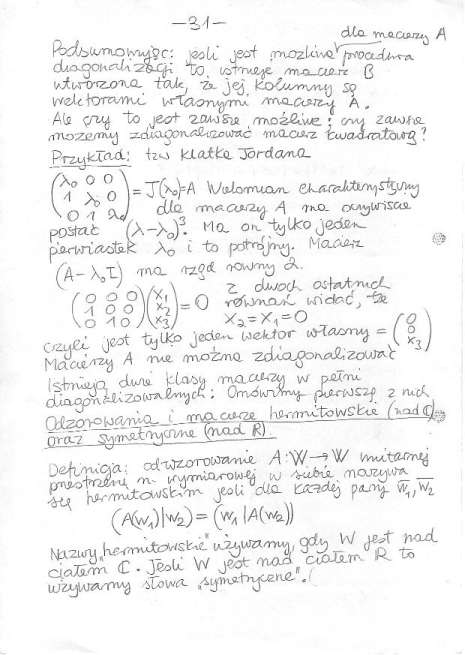 —31—
dla macierzy A
Podsumowując: jeśli jest możliwa procedura
diagonalizacji to istnieje macierz B
utworzona tak, że jej kolumny są
wektorami własnymi macierzy A.
Ale czy to jest zawsze możliwe: czy zawsze
możemy zdiagonalizować macierz kwadratową?
Przykład: tzw klatka Jordana
(λ₀ 0 0
1 λ₀ 0
0 1 λ₀) = J(λ₀)=A Wielomian charakterystyczny
dla macierzy A ma oczywiście
postać (λ-λ₀)³. Ma on tylko jeden
pierwiastek λ₀ i to potrójny. Macierz
(A-λ₀I) ma rząd równy 2.
(0 0 0
1 0 0
0 1 0)(x₁
x₂
x₃) = 0 z dwóch ostatnich
równań widać, że
x₂=x₁=0
czyli jest tylko jeden wektor własny = (0
0
x₃)
Macierzy A nie można zdiagonalizować
Istnieją duże klasy macierzy w pełni
diagonalizowalnych: Omówimy pierwszą z nich
Odzorowania i macierze hermitowskie (nad ℂ)
oraz symetryczne (nad R).
Definicja: odwzorowanie A:W→W unitarnej
przestrzeni n wymiarowej w siebie nazywa
się hermitowskim jeśli dla każdej pary w̅₁, w̅₂
(A(w₁)|w₂) = (w₁|A(w₂))
Nazwy „hermitowskie" używamy, gdy W jest nad
ciałem ℂ. Jeśli W jest nad ciałem R to
używamy słowa „symetryczne".